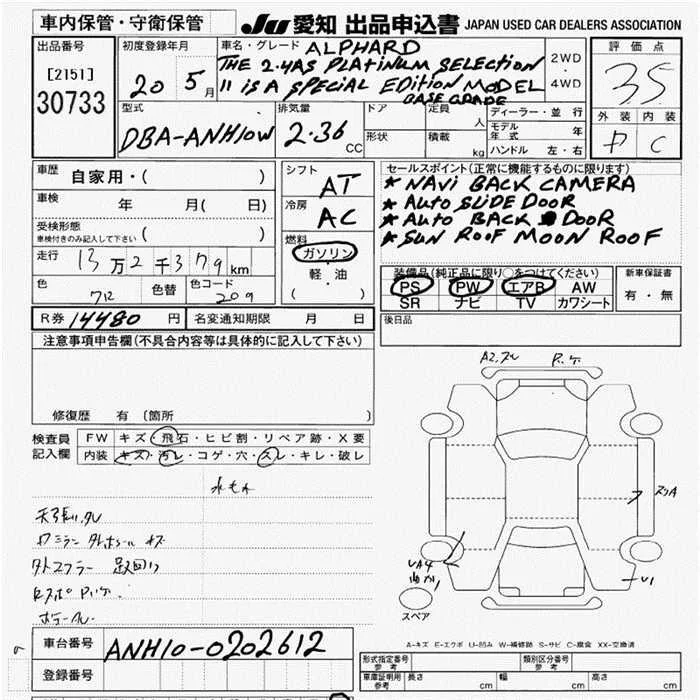 車内保管・守衛保管
Ju 愛知 出品申込書 JAPAN USED CAR DEALERS ASSOCIATION
出品番号
[2151]
30733
初度登録年月
20 5月
車名・グレード ALPHARD
THE 2.4AS PLATINUM SELECTION
11 IS A SPECIAL EDITION MODEL
BASE GRADE
2WD
・
4WD
評価点
3.5
外装 内装
C
型式
DBA-ANH10W
排気量
2.36 CC
ドア
形状
定員 人
積載 kg
ディーラー・並行
モデル年式 年
ハンドル 左・右
車歴 自家用・( )
車検 年 月( 日)
受検形態
車検付きのみ記入して下さい ( )
走行 13万2千379km
色 712 色替 色コード 209
シフト AT
冷房 AC
燃料
ガソリン
軽・油
( )
セールスポイント(正常に機能するものに限ります)
★ NAVI BACK CAMERA
★ AUTO SLIDE DOOR
★ AUTO BACK DOOR
★ SUN ROOF MOON ROOF
装備品(純正品に限り○をつけてください)
PS PW エアB AW
SR ナビ TV カワシート
新車保証書
有・無
R券 14480 円 名変通知期限 月 日
後日品
注意事項申告欄(不具合内容等は具体的に記入して下さい)
修復歴 有 〔箇所 〕
検査員記入欄
FW キズ・飛石・ヒビ割・リペア跡・X要
内装 キズ・汚レ・コゲ・穴・スレ・キレ・破レ
天張り、タレ
スリA
UA4
U1
スペア
A-キズ E-エクボ U-凹み W-補修跡 S-サビ C-腐食 XX-交換済
車台番号 ANH10-0202612
登録番号
形式指定番号 参考
類別区分番号 参考
車庫証明用 参考 長さ cm 幅 cm 高さ cm